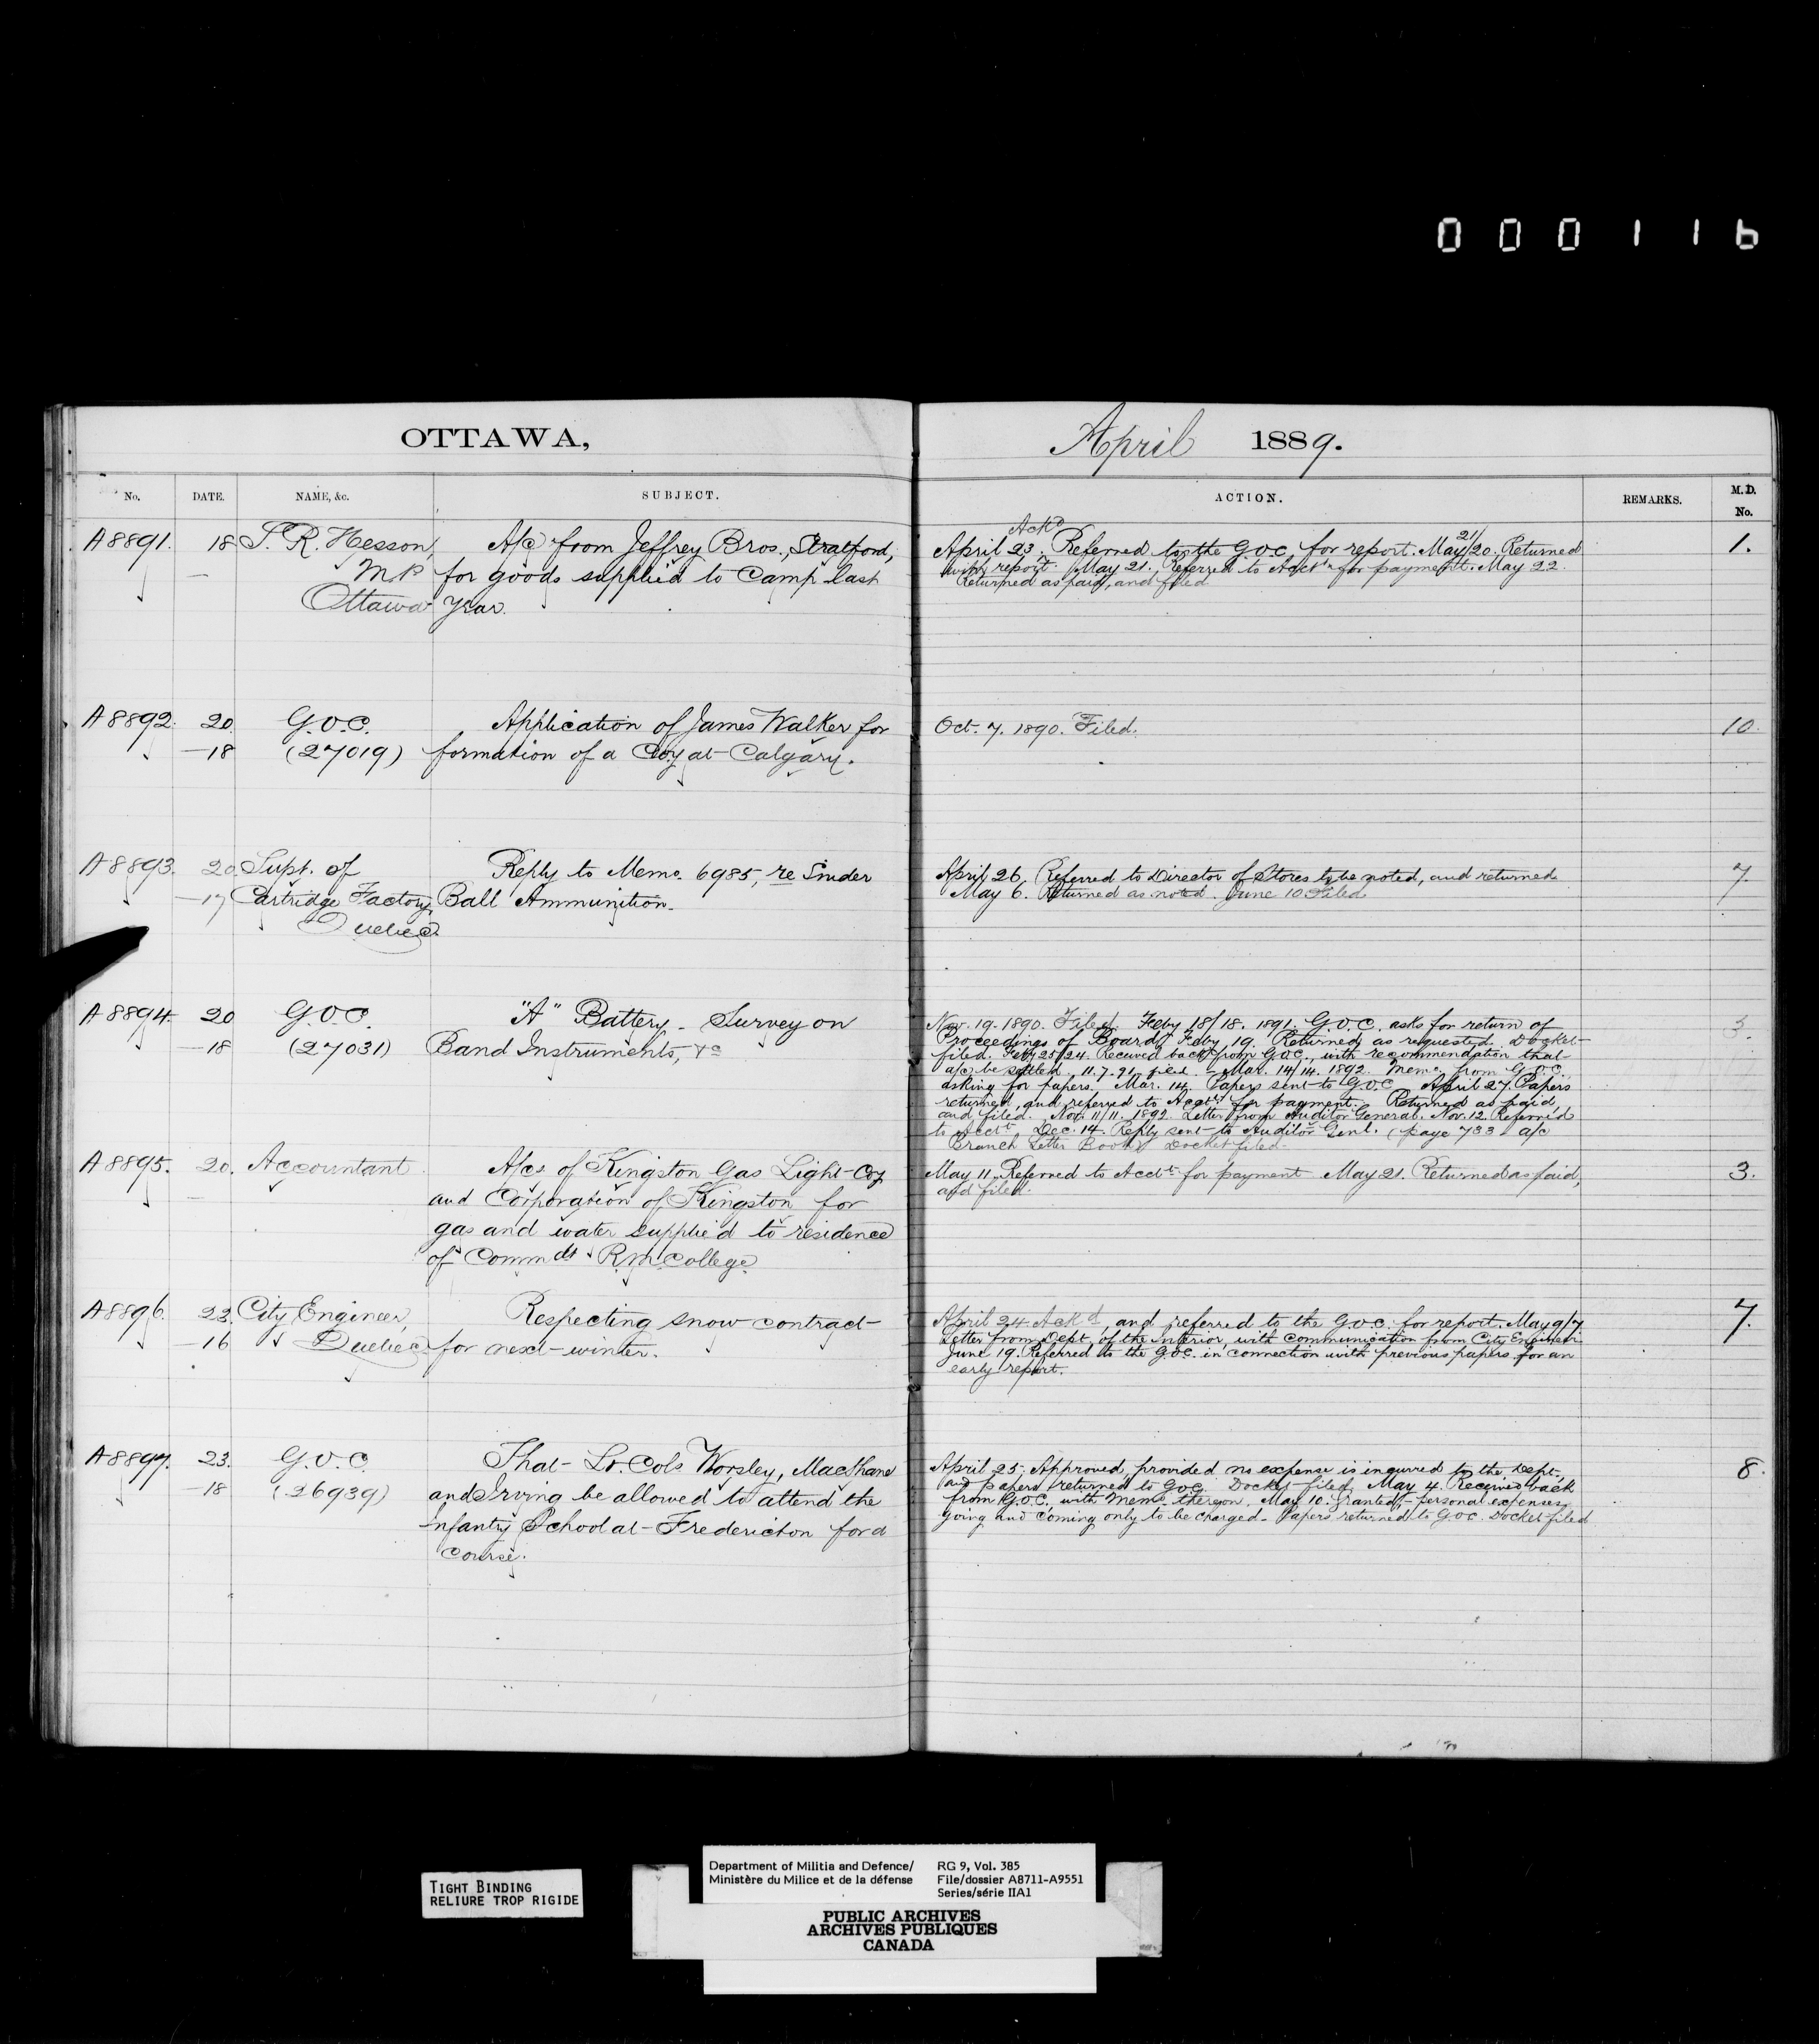 000116
OTTAWA,
April 1889.
No. DATE. NAME, &c. SUBJECT.
ACTION. REMARKS. M.D. No.
A8891. 18 S. R. Hesson, A/c from Jeffrey Bros., Stratford,
M P for goods supplied to Camp last
Ottawa year.
Ackd
April 23. Referred to the G.O.C. for report. May 21/20. Returned
with report. May 21. Referred to Acctt for payment. May 22.
Returned as paid, and filed
1.
A8892. 20. G.O.C. Application of James Walker for
—18 (27019) formation of a Coy at Calgary.
Oct. 7. 1890. Filed.
10.
A8893. 20. Supt. of Reply to Memo. 6985, re Snider
—17 Cartridge Factory, Ball Ammunition.
Quebec.
April 26. Referred to Director of Stores to be noted, and returned
May 6. Returned as noted. June 10 Filed
7.
A8894. 20 G.O.C. "A" Battery - Survey on
—18 (27031) Band Instruments, &c
Nov. 19. 1890. Filed. Feby 18/18. 1891. G.O.C. asks for return of
Proceedings of Board. Feby 19. Returned as requested. Docket
filed. Feby 25/24. Received back from G.O.C., with recommendation that
a/c be settled. 11.7.91. filed. - Mar. 14/14. 1892. Memo. from G.O.C.
asking for papers. Mar. 14. Papers sent to G.O.C. April 27. Papers
returned, and referred to Acctt for payment. Returned as paid,
and filed. Nov. 11/11. 1892. Letter from Auditor General. Nov. 12. Referred
to Acctt Dec. 14. Reply sent to Auditor Genl. (page 733 a/c
Branch Letter Book) Docket filed.
3.
A8895. 20. Accountant A/cs of Kingston Gas Light Coy
and Corporation of Kingston for
gas and water supplied to residence
of Commdt R.M. College
May 11. Referred to Acctt for payment May 21. Returned as paid,
and filed.
3.
A8896. 23. City Engineer, Respecting snow contract
—16 Quebec for next winter.
April 24. Ackd, and referred to the G.O.C. for report. May 9/7
Letter from Dept. of the Interior, with communication from City Engineer.
June 19. Referred to the G.O.C. in connection with previous papers for an
early report.
7.
A8897. 23. G.O.C. That Lt. Cols Worsley, MacShane
—18 (26939) and Irving be allowed to attend the
Infantry School at Fredericton for a
course.
April 25. Approved, provided no expense is incurred to the Dept,
and papers returned to G.O.C. Docket filed. May 4. Received back
from G.O.C. with memo thereon. May 10. Granted, - personal expenses
going and coming only to be charged - Papers returned to G.O.C. Docket filed
8.
TIGHT BINDING
RELIURE TROP RIGIDE
Department of Militia and Defence/
Ministère du Milice et de la défense
RG 9, Vol. 385
File/dossier A8711-A9551
Series/série IIA1
PUBLIC ARCHIVES
ARCHIVES PUBLIQUES
CANADA